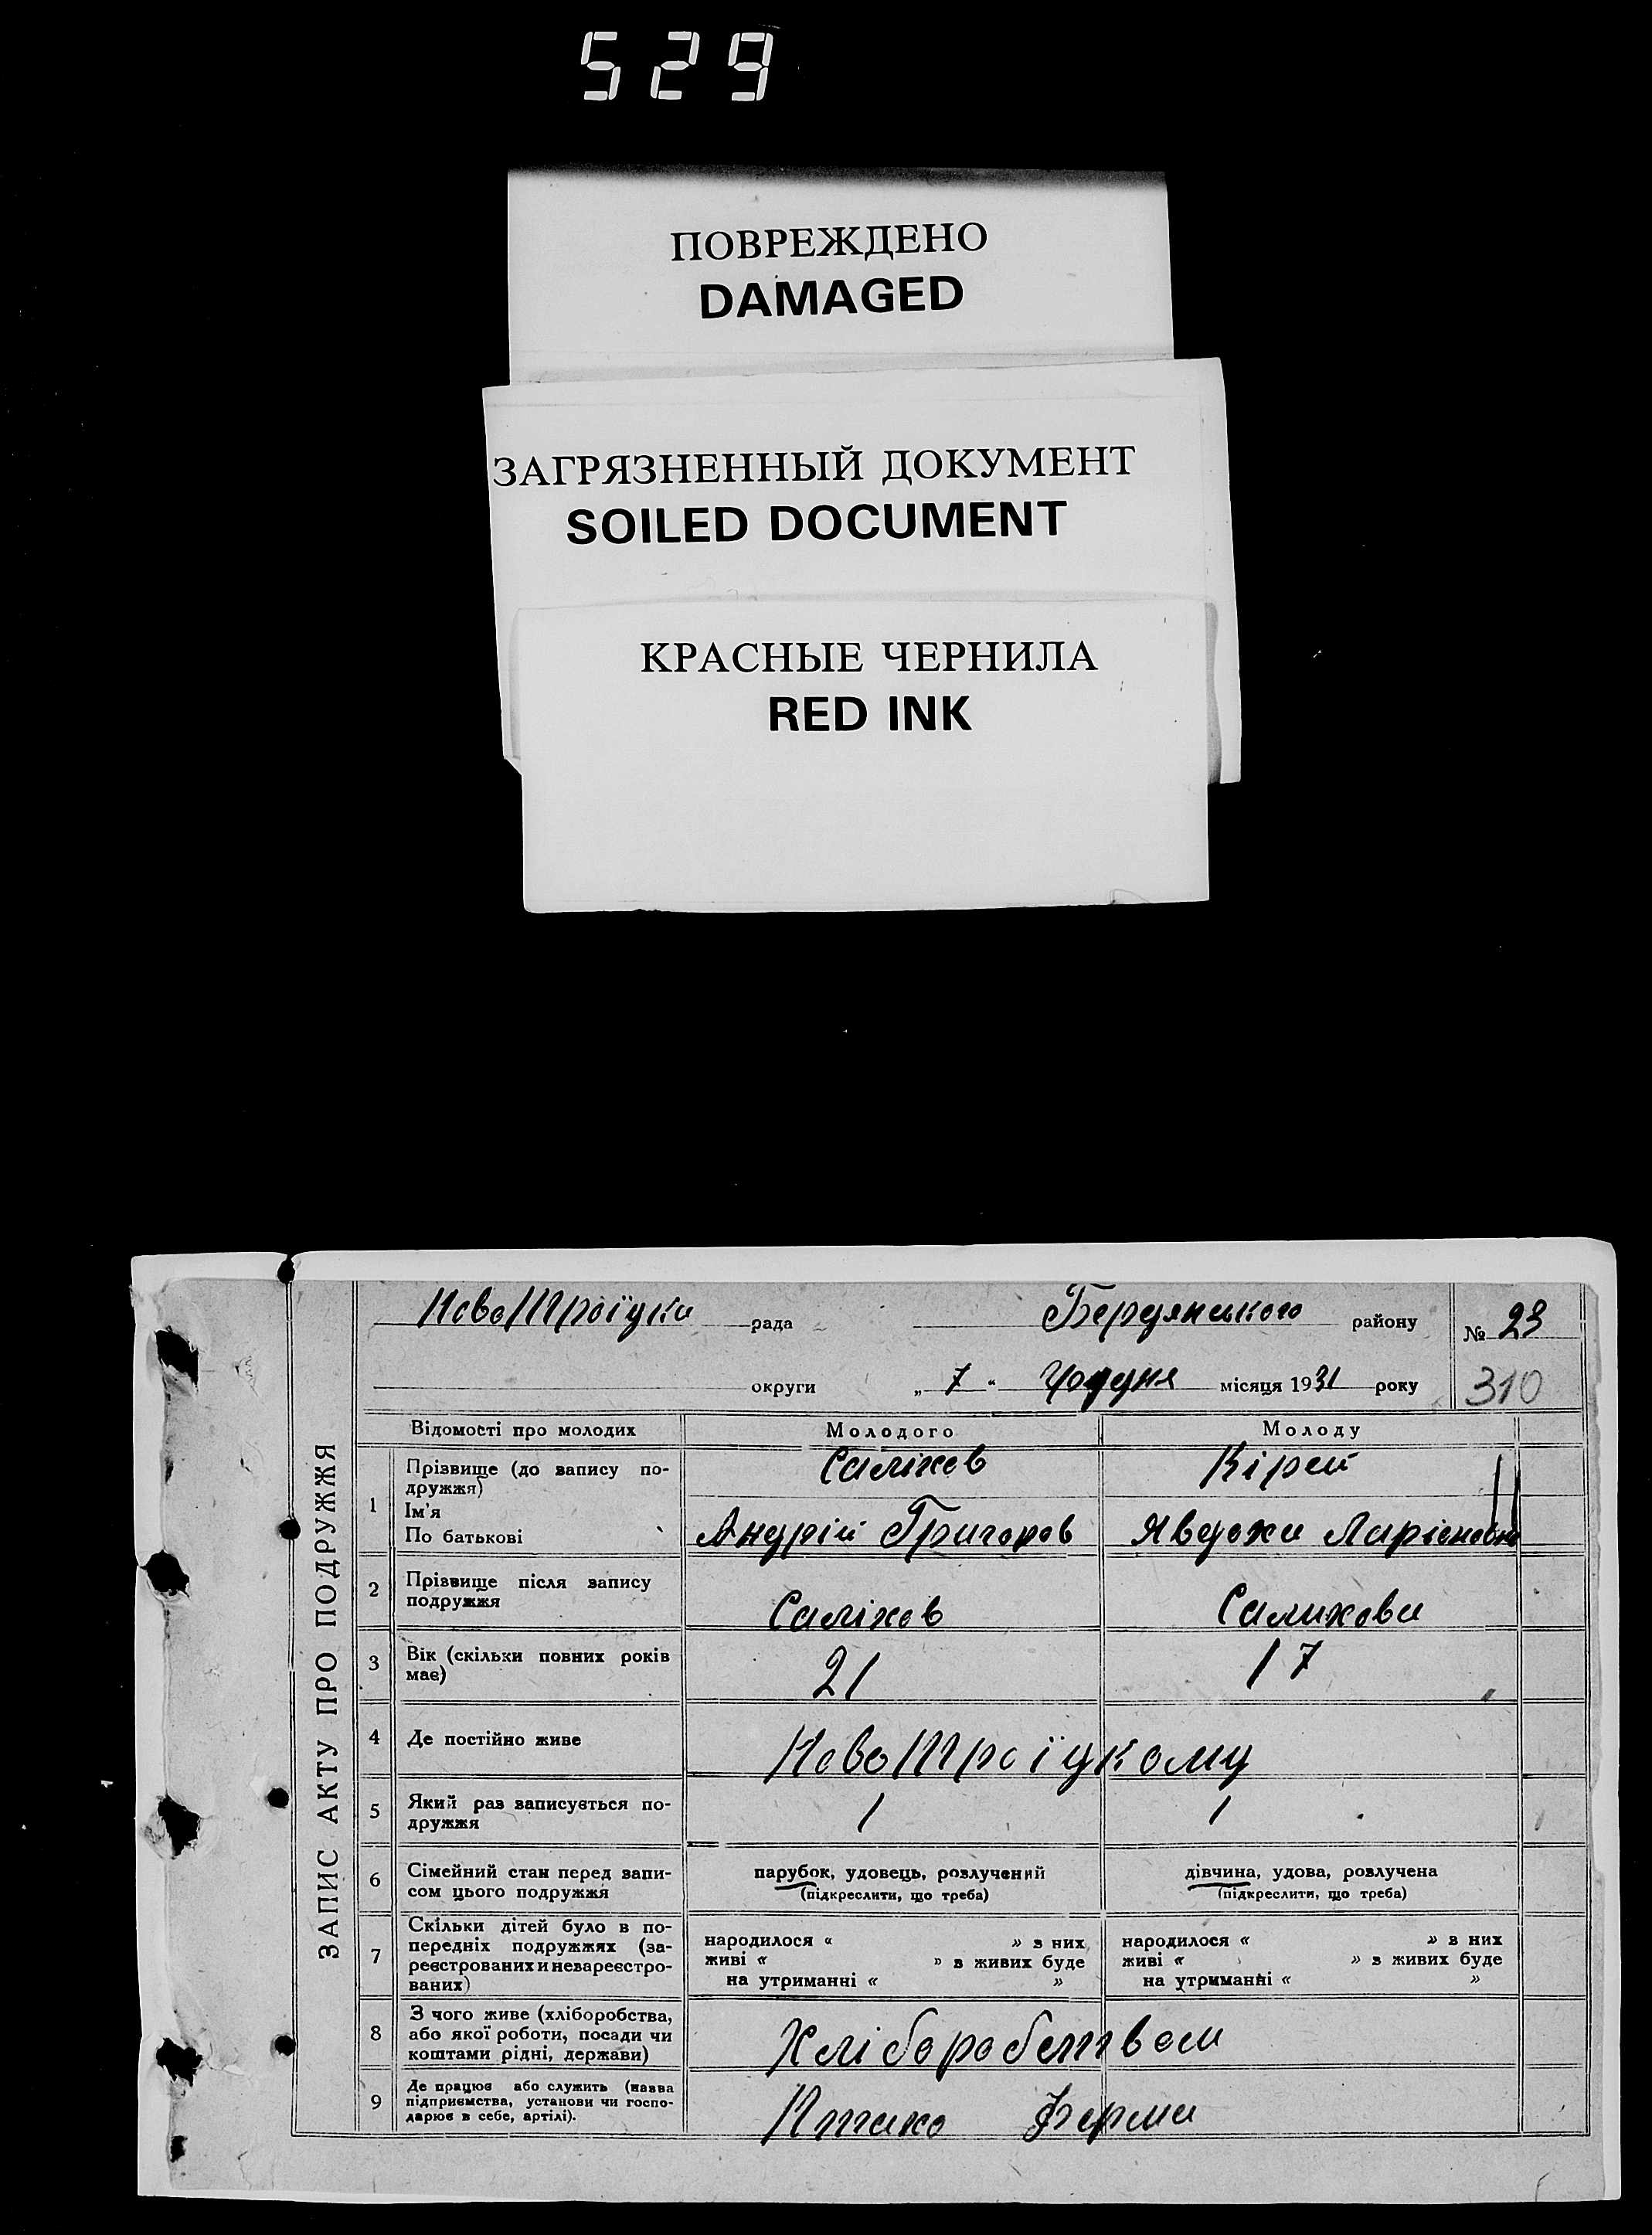 529
ПОВРЕЖДЕНО
DAMAGED
ЗАГРЯЗНЕННЫЙ ДОКУМЕНТ
SOILED DOCUMENT
КРАСНЫЕ ЧЕРНИЛА
RED INK
ЗАПИС АКТУ ПРО ПОДРУЖЖЯ
НовоТроїцка рада Бердянського району № 23
округи „ 7 “ місяця 1931 року 310
Відомості про молодих Молодого Молоду
1 Прізвище (до запису по-
дружжя) Саліхов Кірей
Ім'я
По батькові Андрій Григоров Явдоха Ларіоновна
2 Прізвище після запису
подружжя Саліхов Салихова
3 Вік (скільки повних років
має) 21 17
4 Де постійно живе НовоТроїцкому
5 Який раз записується по-
дружжя 1 1
6 Сімейний стан перед запи-
сом цього подружжя парубок, удовець, розлучений дівчина, удова, розлучена
(підкреслити, що треба) (підкреслити, що треба)
7 Скільки дітей було в по-
передніх подружжях (за-
реєстрованих и незареєстро-
ваних)
народилося « » з них народилося « » з них
живі « » з живих буде живі « » з живих буде
на утриманні « » на утриманні « »
8 З чого живе (хліборобства,
або якої роботи, посади чи
коштами рідні, держави) Хліборобством
9 Де працює або служить (назва
підприємства, установи чи госпо-
дарює в себе, артілі). Птахо Ферма